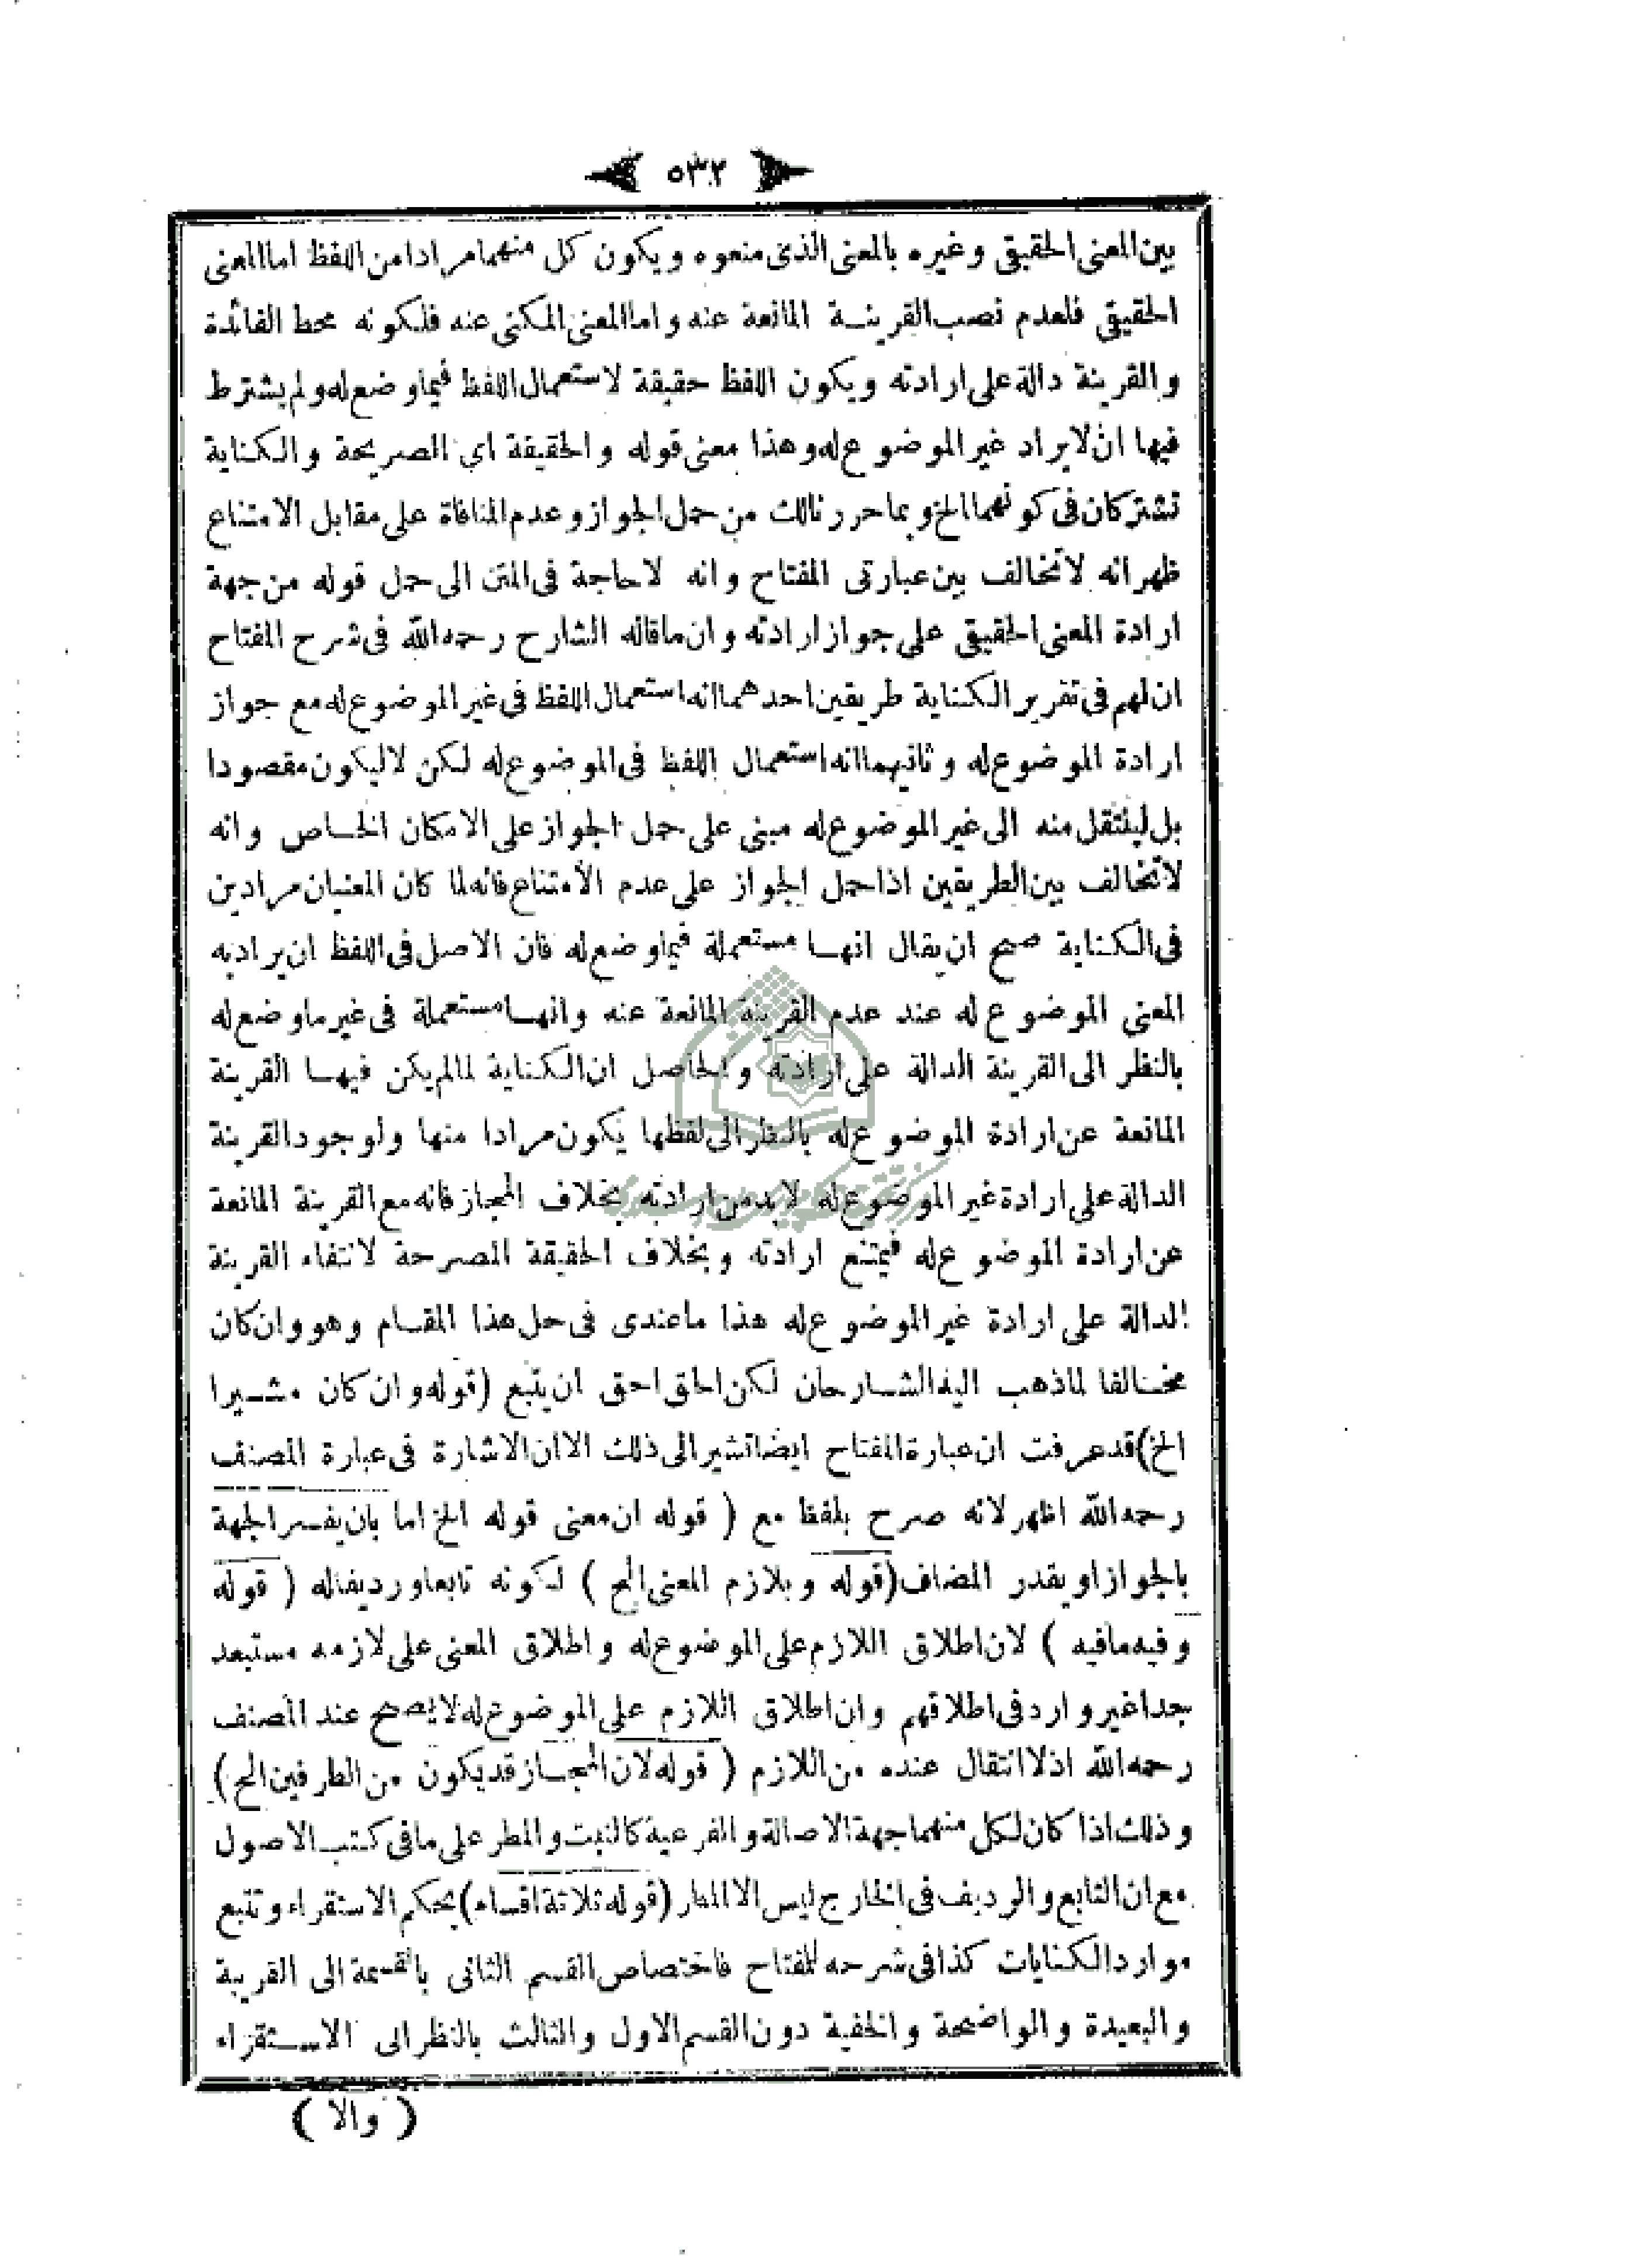 ٥٣٢
بين المعنى الحقيقي وغيره بالمعنى الذى منعوه ويكون كل منهما مرادا من اللفظ اما المعنى
الحقيقي فلعدم نصب القرينة المانعة عنه واما المعنى المكنى عنه فلكونه محط الفائدة
والقرينة دالة على ارادته ويكون اللفظ حقيقة لاستعمال اللفظ فيما وضع له ولم يشترط
فيها ان لا يراد غير الموضوع له وهذا معنى قوله والحقيقة اى الصريحة والكناية
تشتركان فى كونهما الخ وبما حررنا لك من حمل الجواز وعدم المنافاة على مقابل الامتناع
ظهر انه لا تخالف بين عبارتى المفتاح وانه لا حاجة فى المتن الى حمل قوله من جهة
ارادة المعنى الحقيقى على جواز ارادته وان ما قاله الشارح رحمه الله فى شرح المفتاح
ان لهم فى تقرير الكناية طريقين احدهما انه استعمال اللفظ فى غير الموضوع له مع جواز
ارادة الموضوع له وثانيهما انه استعمال اللفظ فى الموضوع له لكن لا ليكون مقصودا
بل لينتقل منه الى غير الموضوع له مبنى على حمل الجواز على الامكان الخاص وانه
لا تخالف بين الطريقين اذا حمل الجواز على عدم الامتناع فانه لما كان المعنيان مرادين
فى الكناية صح ان يقال انها مستعملة فيما وضع له فان الاصل فى اللفظ ان يراد به
المعنى الموضوع له عند عدم القرينة المانعة عنه وانها مستعملة فى غير ما وضع له
بالنظر الى القرينة الدالة على ارادته والحاصل ان الكناية لما لم يكن فيها القرينة
المانعة عن ارادة الموضوع له بالنظر الى لفظها يكون مرادا منها ولوجود القرينة
الدالة على ارادة غير الموضوع له لا بد من ارادته بخلاف المجاز فانه مع القرينة المانعة
عن ارادة الموضوع له فيمتنع ارادته وبخلاف الحقيقة المصرحة لانتفاء القرينة
الدالة على ارادة غير الموضوع له هذا ما عندى فى حل هذا المقام وهو وان كان
مخالفا لما ذهب اليه الشارحان لكن الحق احق ان يتبع (قوله وان كان مشيرا
الخ) قد عرفت ان عبارة المفتاح ايضا تشير الى ذلك الا ان الاشارة فى عبارة المصنف
رحمه الله اظهر لانه صرح بلفظ مع ( قوله ان معنى قوله الخ اما بان يفسر الجهة
بالجواز او يقدر المضاف (قوله وبلازم المعنى الخ ) لكونه تابعا ورديفا له ( قوله
وفيه ما فيه ) لان اطلاق اللازم على الموضوع له واطلاق المعنى على لازمه مستبعد
جدا غير وارد فى اطلاقهم وان اطلاق اللازم على الموضوع له لا يصح عند المصنف
رحمه الله اذ لا انتقال عنده من اللازم ( قوله لان المجاز قد يكون من الطرفين الخ)
وذلك اذا كان لكل منهما جهة الاصالة والفرعية كالنبت والمطر على ما فى كتب الاصول
مع ان التابع والرديف فى الخارج ليس الا المطر (قوله ثلاثة اقسام) بحكم الاستقراء وتتبع
موارد الكنايات كذا فى شرحه للمفتاح فاختصاص القسم الثانى بالقسمة الى القريبة
والبعيدة والواضحة والخفية دون القسم الاول والثالث بالنظر الى الاستقراء
( والا )